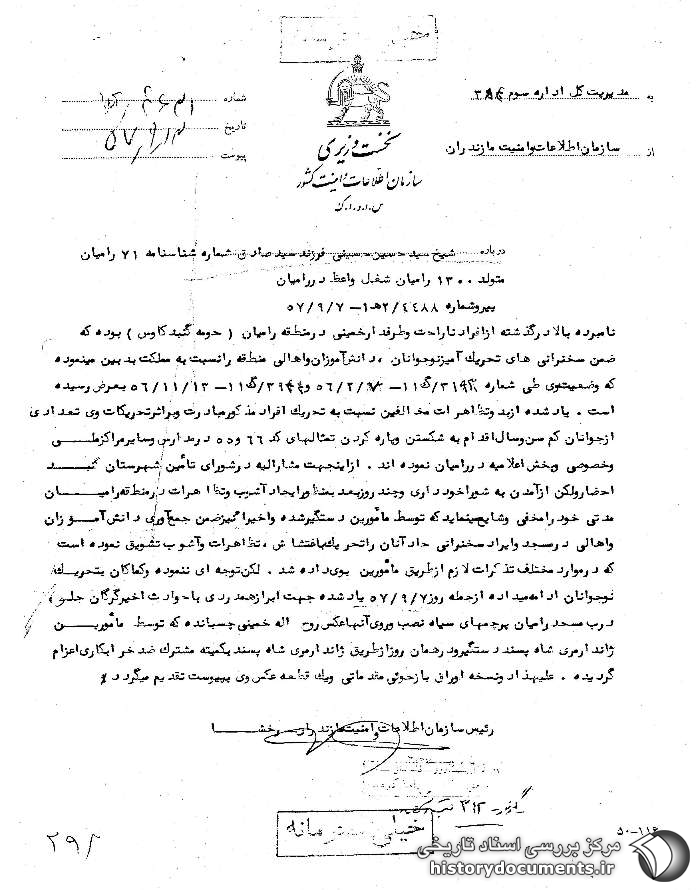 به مدیریت کل اداره سوم ۳۸۶
شماره
تاریخ ۵۷/۹/۱۳
پیوست
از سازمان اطلاعات و امنیت مازندران
نخست وزیری
سازمان اطلاعات و امنیت کشور
س.ا.و.ا.ک
درباره شیخ سید حسین حسینی فرزند سید صادق شماره شناسنامه ۷۱ رامیان
متولد ۱۳۰۰ رامیان شغل واعظ در رامیان
پیرو شماره ۲/۴۴۸۸ه‍۱ – ۵۷/۹/۷
نامبرده بالا در گذشته از افراد ناراحت و طرفدار خمینی در منطقه رامیان (حومه گنبدکاوس) بوده که
ضمن سخنرانی های تحریک آمیز نوجوانان، دانش آموزان و اهالی منطقه را نسبت به مملکت بدبین مینموده
که وضعیت وی طی شماره ۱۱ – ۵۶/۲/ و ۱۱ – ۵۶/۱۱/۱۳ بعرض رسیده
است. یاد شده از بدو تظاهرات مخالفین نسبت به تحریک افراد مذکور مبادرت و براثر تحریکات وی تعدادی
از جوانان کم سن و سال اقدام به شکستن و پاره کردن تمثالهای کد ۶۶ و ۵۵ در مدارس و سایر مراکز ملی
و خصوصی و پخش اعلامیه در رامیان نموده اند. از اینجهت مشارالیه در شورای تأمین شهرستان گنبد
احضار ولکن از آمدن به شورا خودداری و چند روز بعد بمنظور ایجاد آشوب و تظاهرات در منطقه رامیان
مدتی خود را مخفی و شایع مینماید که توسط مأمورین دستگیر شده و اخیرا نیز ضمن جمع آوری دانش آموزان
و اهالی در مسجد و ایراد سخنرانی حاد آنان را تحریک باغتشاش، تظاهرات و آشوب تشویق نموده است
که در موارد مختلف تذکرات لازم از طریق مأمورین بوی داده شد. لکن توجه ای ننموده و کماکان بتحریک
نوجوانان ادامه میداده از جمله روز ۵۷/۹/۷ یاد شده جهت ابراز همدردی با حوادث اخیر گرگان جلو،
درب مسجد رامیان پرچمهای سیاه نصب و روی آنها عکس روح اله خمینی چسبانده که توسط مأمورین
ژاندارمری شاه پسند دستگیر و در همان روز از طریق ژاندارمری شاه پسند بکمیته مشترک ضد خرابکاری اعزام
گردیده. علیهذا دو نسخه اوراق بازجوئی مقدماتی و یک قطعه عکس وی بپیوست تقدیم میگردد
رئیس سازمان اطلاعات و امنیت مازندران رخشا
۳۱۲
خیلی محرمانه
۵۰-۱۱۶
۲۹۲
مرکز بررسی اسناد تاریخی
historydocuments.ir